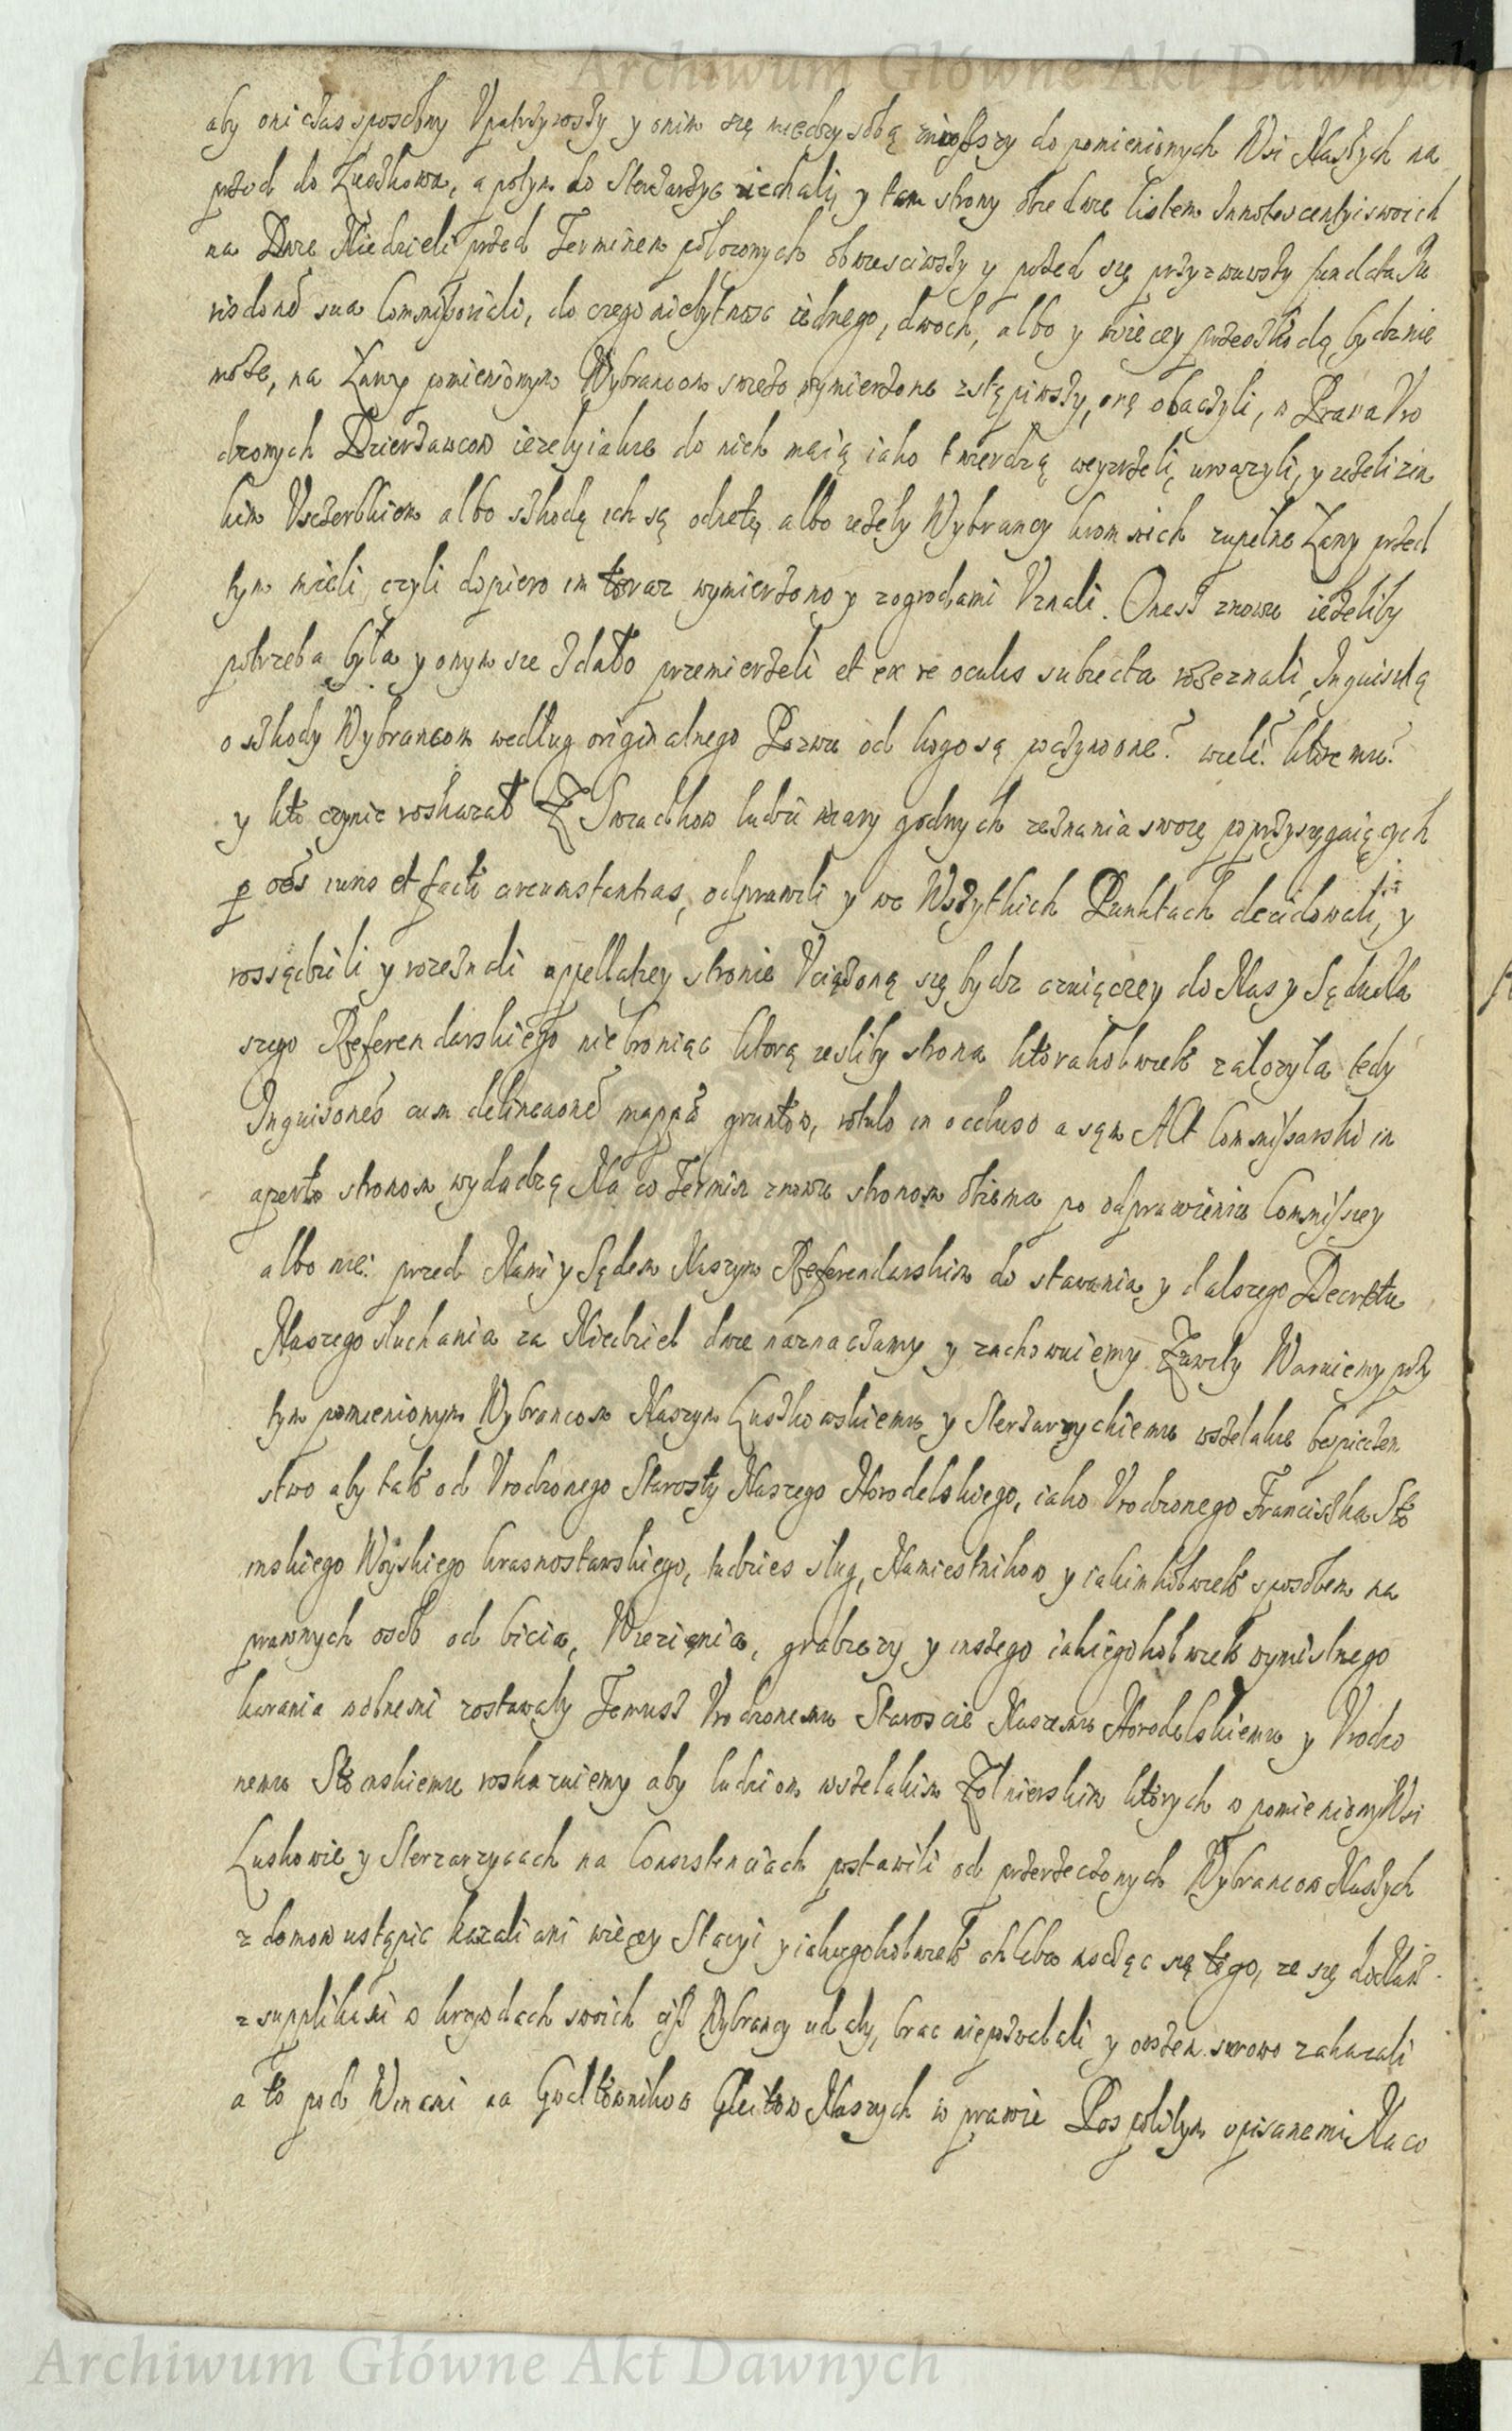 Archiwum Główne Akt Dawnych
aby oni czas sposobny Upatrzywszy y onim się między sobą zniosszy do pomienionych Wsi Naszych na
przod do Łuszkowa, a potym do Sterdarzyc ziechali, y tam strony obiedwie listem Innotescentyi swoich
na Dwie Niedzieli przed Terminem położonych obwiesciwszy y przed się przyzwawszy fundata Iu
risdone sua Commissoriali, do czego niebytnosc iednego, dwoch, albo y więcey przeszkodą bydz nie
może, na Łany pomienionym Wybrancom swieżo wymierzone zstąpiwszy, onę obaczyli, w Prawa Uro
dzonych Dzierżawcow ieżely iakie do nich maią iako twierdzą weyrzeli, uwazyli, y ieżeli zia
kim Uszczerbkiem albo szkodą ich są odięte, albo ieżely Wybrancy krom nich zupełne Łany przed
tym mieli, czyli dopiero im teraz wymierzono y zogrodami Uznali. Oneż znowu ieżeliby
potrzeba była y onym sie zdało przemierzeli et ex re oculis subiecta rozeznali, Inquisitią
o szkody Wybrancom według originalnego Pozwu od kogo są poczynione? wiele? ktoremu?
y kto czynic roskazał Z Swiadkow ludzi wiary godnych zeznania swoię poprzysięgaiących
p oes iuris et facti circumstantias, odprawili y we Wszytkich Punktach decidowali, y
rossądzili y rozeznali appellatiey stronie Uciążoną się bydz czuiączey do Nas y Sądu Na
szego Referendarskiego niebroniąc ktorą iesliby strona ktorakolwiek założyła tedy
Inquisones cum delineaone mappae gruntow, rotulo in occluso a sąm Akt Commissarski in
aperto stronom wydadzą Na co Termin znowu stronom obiema po odprawieniu Commissiey
albo nie: przed Nami y Sądem Naszym Referendarskim do stawania y dalszego Decretu
Naszego słuchania za Niedziel dwie naznaczamy y zachowuiemy Zawrzy Waruiemy przy
tym pomienionym Wybrancom Naszym Łuszkowskiemu y Sterdarzyckiemu wszelakie bespieczen
stwo aby tak od Urodzonego Starosty Naszego Horodelskiego, iako Urodzonego Franciszka Sło
mskiego Woyskiego krasnostawskiego, tudzies sług, Namiestnikow y iakimkolwiek sposobem na
prawnych osob od bicia, Więzięnia, grabiezy y inszego iakiegokolwiek wymislnego
karania wolnemi zostawaly Temusz Urodzonemu Staroscie Naszemu Horodelskiemu y Urodzo
nemu Słomskiemu roskazuiemy aby ludziom wszelakim Żołnierskim ktorych w pomieniony Wsi
Łuskowie y Sterzarzycach na Consistenciach postawili od przerzeczonych Wybrancow Naszych
z domow ustąpic kazali ani więcy Stacyi y iakiegokolwiek chleba mscząc się tego, ze się do Nas
z supplikami o krzywdach swoich ciż Wybrancy udaly, brac niepozwalali y owszem surowo zakazali
a to pod Winami na Gwałtownikow Gleitow Naszych w prawie Pospolitym opisanemi Na co
Archiwum Główne Akt Dawnych